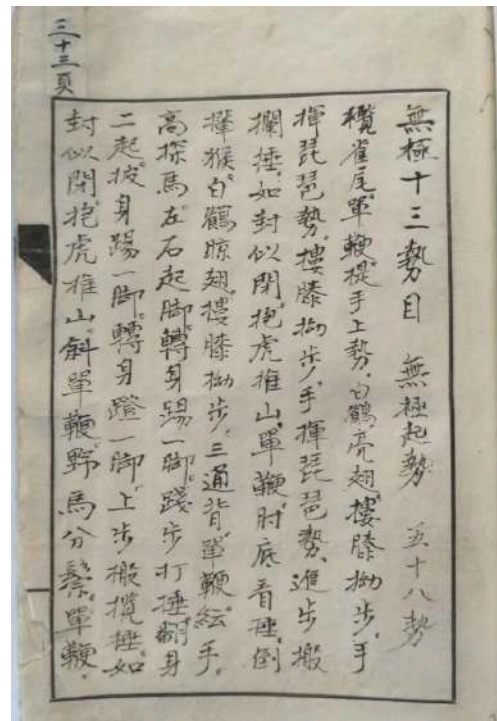 三十三頁
無極十三勢目 無極起勢 五十八勢
攬雀尾。單鞭。提手上勢。白鶴亮翅。摟膝拗步。手
揮琵琶勢。摟膝拗步。手揮琵琶勢。進步搬
攔捶。如封似閉。抱虎推山。單鞭。肘底看捶。倒
攆猴。白鶴晾翅。摟膝拗步。三通背。單鞭。紜手。
高探馬。左右起脚。轉身踢一脚。踐步打捶。翻身
二起。披身踢一脚。轉身蹬一脚。上步搬攬捶。如
封似閉。抱虎推山。斜單鞭。野馬分鬃。單鞭。